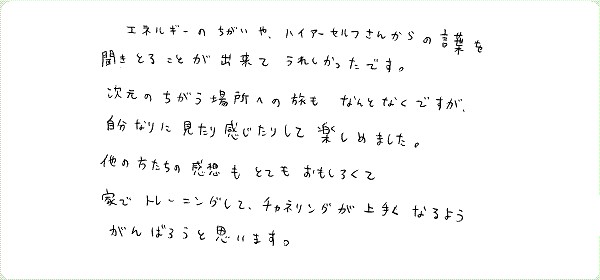 エネルギーのちがいや、ハイアーセルフさんからの言葉を
聞きとることが出来てうれしかったです。
次元のちがう場所への旅も なんとなくですが、
自分なりに見たり感じたりして楽しめました。
他の方たちの感想もとてもおもしろくて
家でトレーニングして、チャネリングが上手くなるよう
がんばろうと思います。